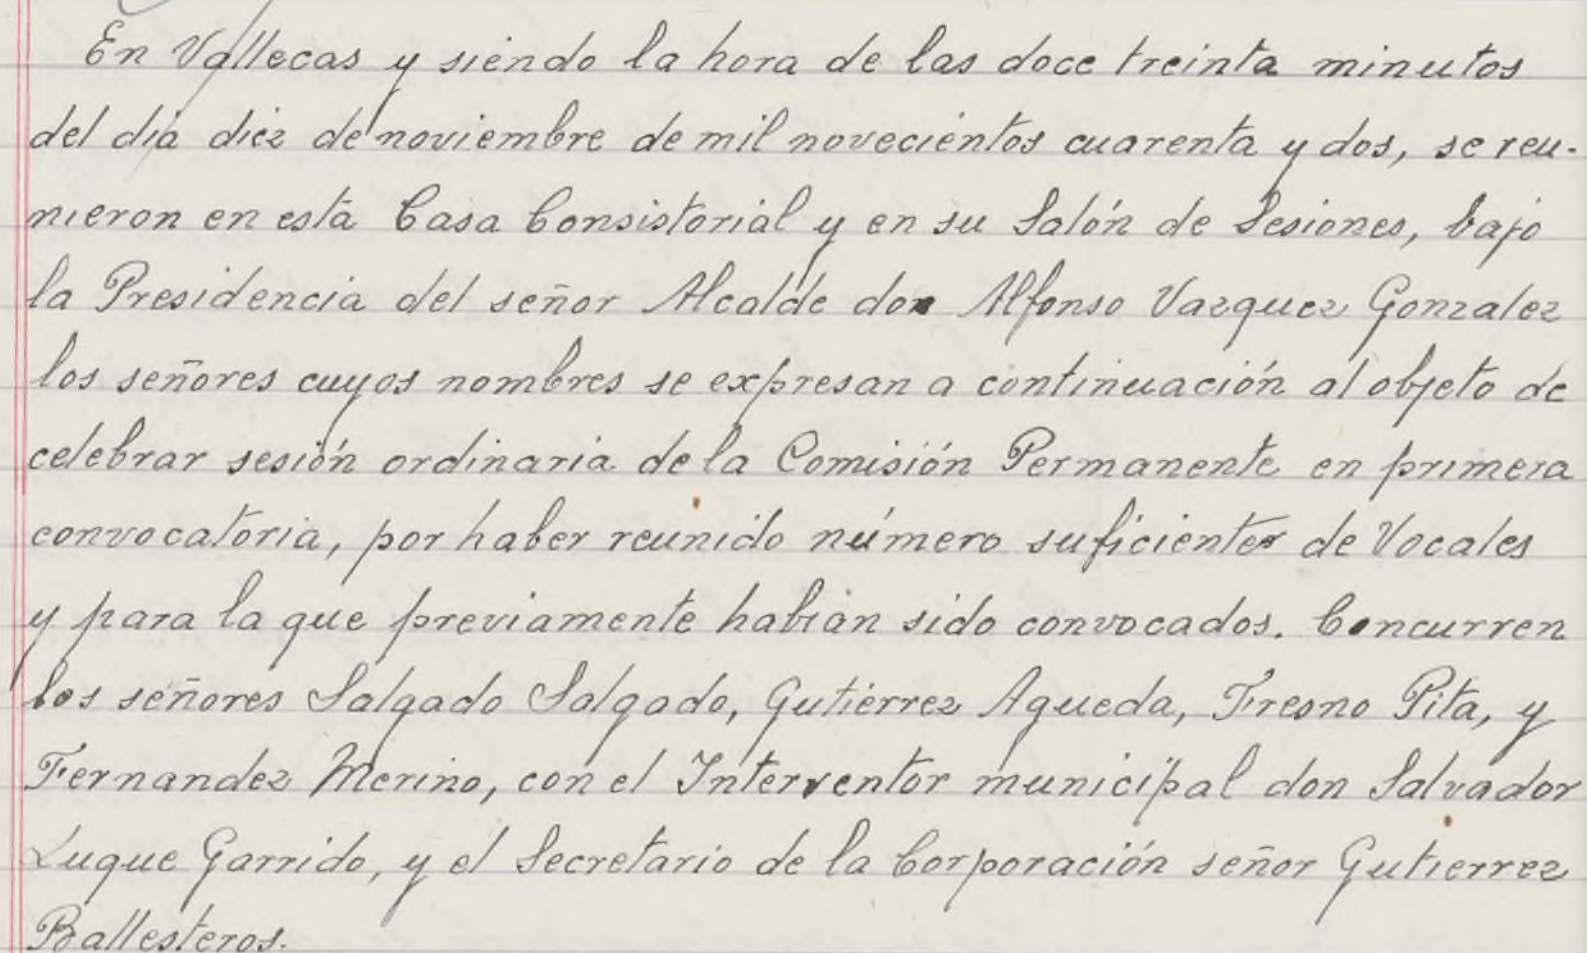 En Vallecas y siendo la hora de las doce treinta minutos
del día diez de noviembre de mil novecientos cuarenta y dos, se reu-
nieron en esta Casa Consistorial y en su Salón de Sesiones, bajo
la Presidencia del señor Alcalde don Alfonso Vazquez Gonzalez
los señores cuyos nombres se expresan a continuación al objeto de
celebrar sesión ordinaria de la Comisión Permanente en primera
convocatoria, por haber reunido número suficiente de Vocales
y para la que previamente habían sido convocados. Concurren
los señores Salgado Salgado, Gutiérrez Agueda, Fresno Pita, y
Fernandez Merino, con el Interventor municipal don Salvador
Luque Garrido, y el Secretario de la Corporación señor Gutierrez
Ballesteros.